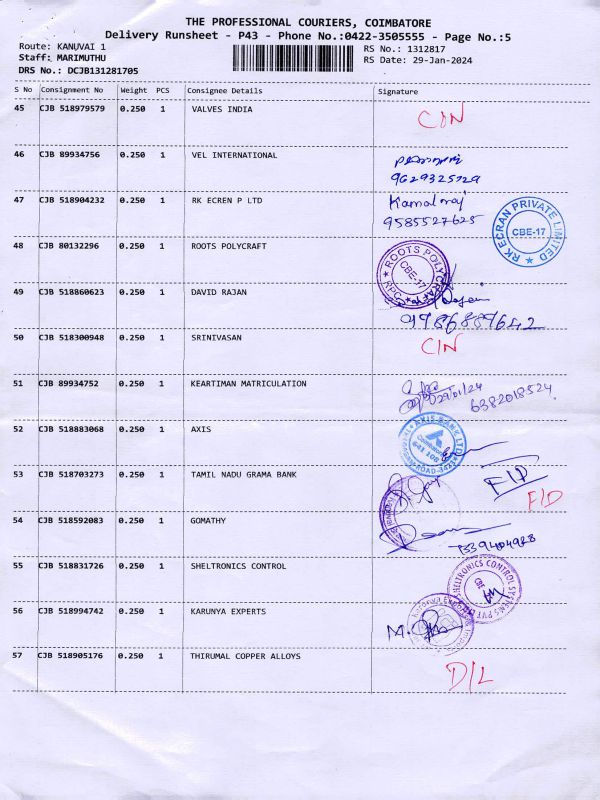 THE PROFESSIONAL COURIERS, COIMBATORE
Delivery Runsheet - P43 - Phone No.:0422-3505555 - Page No.:5
Route: KANUVAI 1
RS No.: 1312817
Staff: MARIMUTHU
RS Date: 29-Jan-2024
DRS No.: DCJB131281705
S No Consignment No Weight PCS Consignee Details Signature
45 CJB 518979579 0.250 1 VALVES INDIA
C/N
46 CJB 89934756 0.250 1 VEL INTERNATIONAL
47 CJB 518904232 0.250 1 RK ECREN P LTD
Kamalraj
9585527625
RK ECRAN PRIVATE LIMITED
CBE-17
48 CJB 80132296 0.250 1 ROOTS POLYCRAFT
ROOTS POLYCRAFT
CBE-17
49 CJB 518860623 0.250 1 DAVID RAJAN
50 CJB 518300948 0.250 1 SRINIVASAN
C/N
51 CJB 89934752 0.250 1 KEARTIMAN MATRICULATION
29/01/24
6382018524
52 CJB 518883068 0.250 1 AXIS
AXIS BANK LTD
53 CJB 518703273 0.250 1 TAMIL NADU GRAMA BANK
F/D
54 CJB 518592083 0.250 1 GOMATHY
55 CJB 518831726 0.250 1 SHELTRONICS CONTROL
SHELTRONICS CONTROL SYSTEMS PVT
CBE
56 CJB 518994742 0.250 1 KARUNYA EXPERTS
57 CJB 518905176 0.250 1 THIRUMAL COPPER ALLOYS
D/L